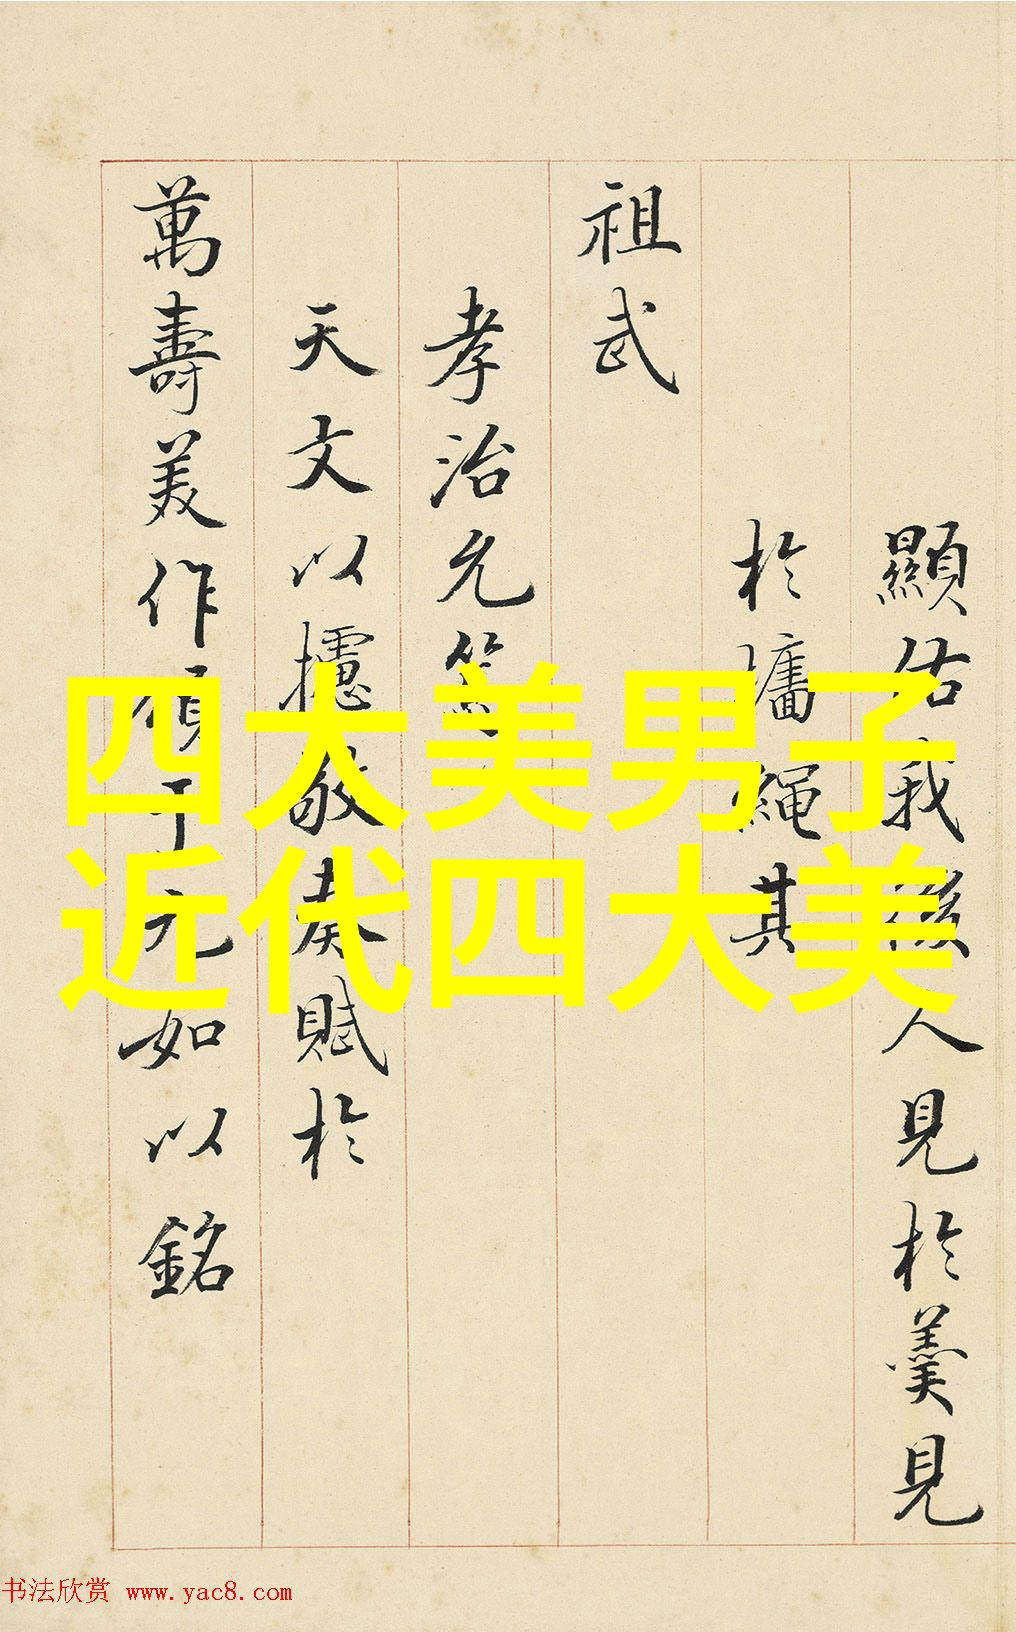 顯佑我後人見於羹見
於墻繩其
祖武
孝治允
天文以攄敬奏賦於
萬壽美作于元如以銘
四大美男子
近代四大美
书法欣赏 www.yac8.com